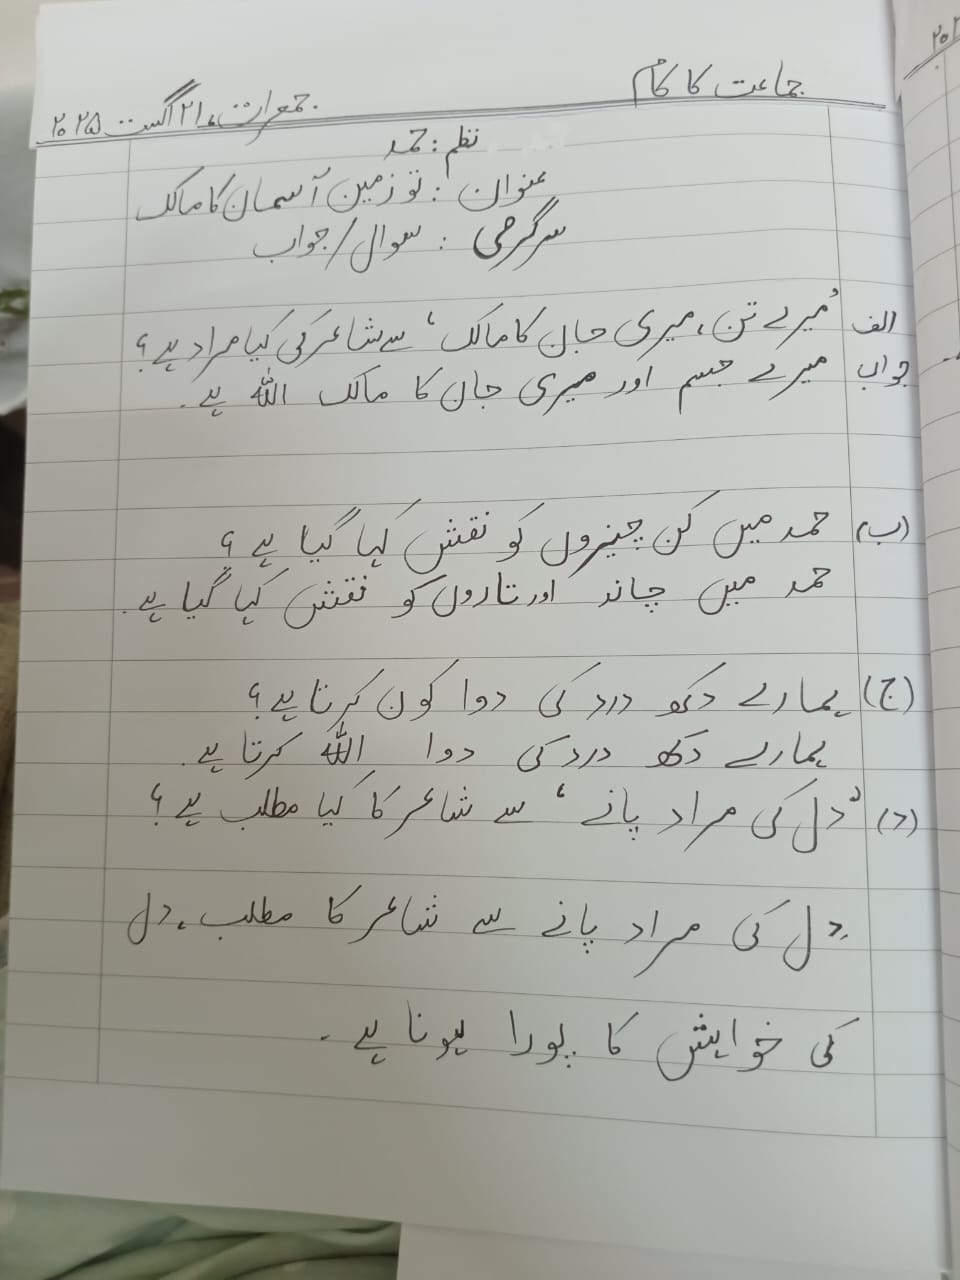 جماعت کا کام
جمعرات، ۲۱ اگست ۲۰۲۵
نظم : حمد
عنوان : تو زمین آسمان کا مالک
سرگرمی : سوال/جواب
الف ’میرے تن، میری جان کا مالک‘ سے شاعر کی کیا مراد ہے؟
جواب میرے جسم اور میری جان کا مالک اللہ ہے۔
(ب) حمد میں کن چیزوں کو نقش کہا گیا ہے؟
حمد میں چاند اور تاروں کو نقش کہا گیا ہے۔
(ج) ہمارے دکھ درد کی دوا کون کرتا ہے؟
ہمارے دکھ درد کی دوا اللہ کرتا ہے۔
(د) ’دل کی مراد پانے‘ سے شاعر کا کیا مطلب ہے؟
دل کی مراد پانے سے شاعر کا مطلب، دل
کی خواہش کا پورا ہونا ہے۔